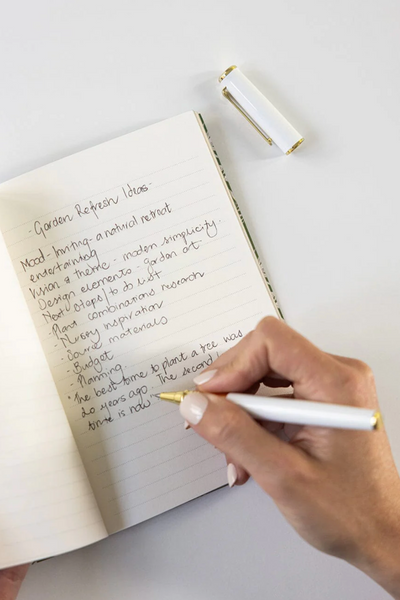 - Garden Refresh Ideas -
Mood - Inviting - a natural retreat
entertaining
Vision & theme - modern simplicity.
Design elements - garden art -
Next steps/to do list
- Plant combinations research
- Nursery inspiration
- Source materials
- Budget
- Planning
"The best time to plant a tree was
20 years ago. The second
time is now